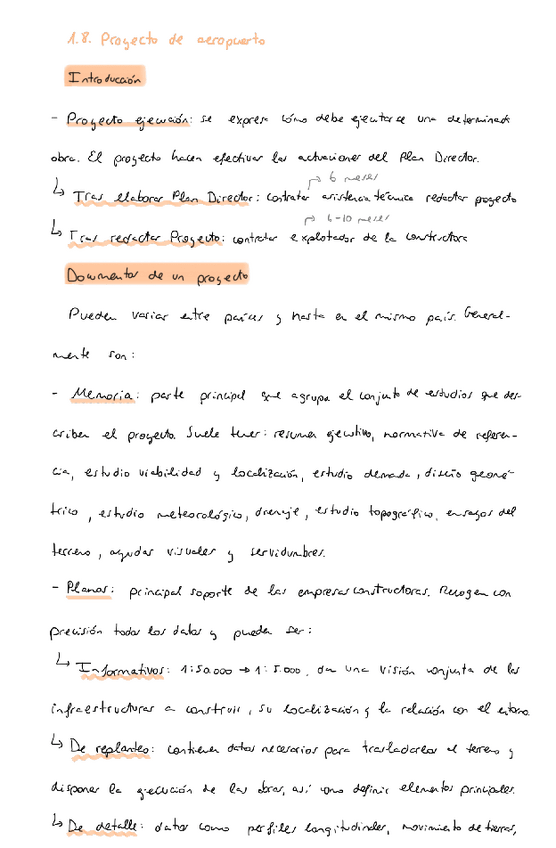 1.8. Proyecto de aeropuerto
Introducción
- Proyecto ejecución: se expresa cómo debe ejecutarse una determinada
obra. El proyecto hacen efectivas las actuaciones del Plan Director.
6 meses
↳ Tras elaborar Plan Director: contratar asistencia técnica redactar proyecto
4-10 meses
↳ Tras redactar Proyecto: contratar explotador de la constructora
Documentos de un proyecto
Pueden variar entre países y hasta en el mismo país. General-
mente son:
- Memoria: parte principal que agrupa el conjunto de estudios que des-
criben el proyecto. Suele tener: resumen ejecutivo, normativa de referen-
cia, estudio viabilidad y localización, estudio demanda, diseño geomé-
trico, estudio meteorológico, drenaje, estudio topográfico, ensayos del
terreno, ayudas visuales y servidumbres.
- Planos: principal soporte de las empresas constructoras. Recogen con
precisión todos los datos y pueden ser:
↳ Informativos: 1:50.000 → 1:5.000, dan una visión conjunta de las
infraestructuras a construir, su localización y la relación con el entorno.
↳ De replanteo: contienen datos necesarios para trasladarlos al terreno y
disponer la ejecución de las obras, así como definir elementos principales.
↳ De detalle: datos como perfiles longitudinales, movimiento de tierras,